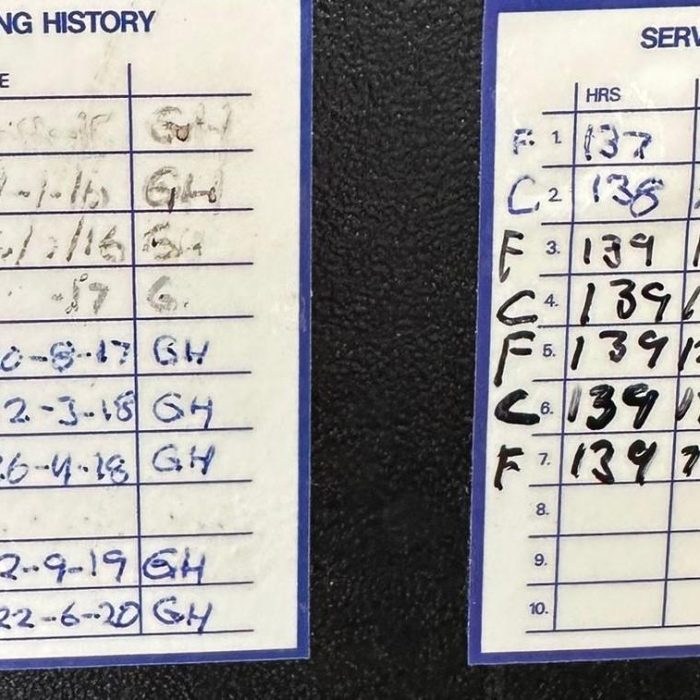 NG HISTORY
E
GH
1-1-16 GH
/16 GH
-17 G.
0-8-17 GH
2-3-18 GH
26-4-18 GH
2-9-19 GH
22-6-20 GH
SERV
HRS
F 1. 137
C 2. 138
F 3. 139
C 4. 139
F 5. 139
C 6. 139
F 7. 139
8.
9.
10.